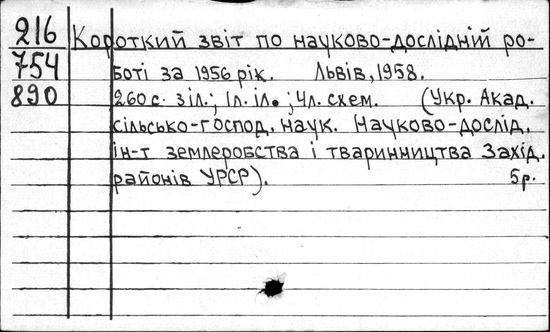 216 Короткий звіт по науково-дослідній ро-
754 боті за 1956 рік. Львів, 1958.
890 260 с. з іл.; 1 л. іл.; 4 л. схем. (Укр. Акад.
сільсько-господ. наук. Науково-дослід.
ін-т землеробства і тваринництва Захід.
районів УРСР). 5 р.